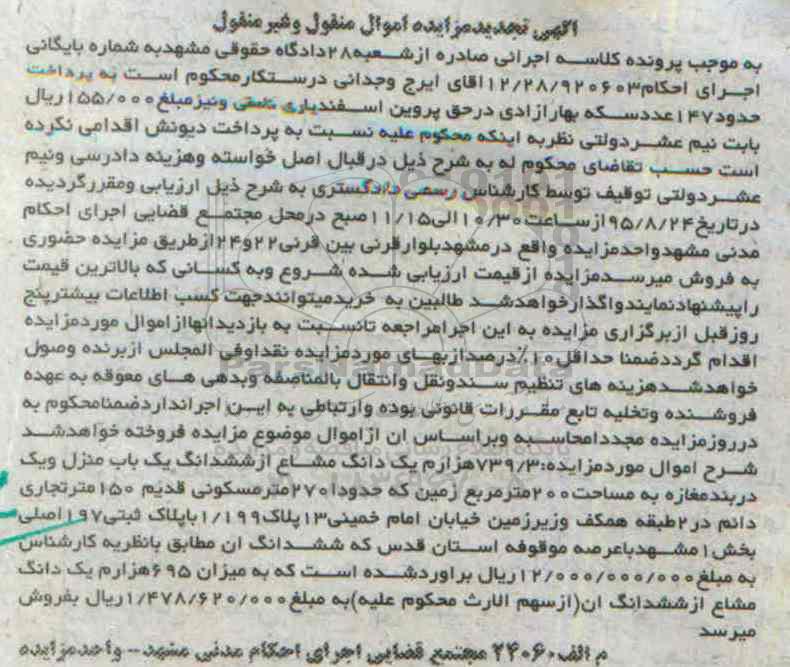 اگهی تجدیدمزایده اموال منقول وغیرمنقول
به موجب پرونده کلاسه اجرائی صادره ازشعبه۲۸دادگاه حقوقی مشهدبه شماره بایگانی
اجرای احکام۱۲/۲۸/۹۲۰۶۰۳اقای ایرج وجدانی درستکارمحکوم است به پرداخت
حدود۱۴۷عددسکه بهارازادی درحق پروین اسفندیاری ونیزمبلغ۱۵۵/۰۰۰ریال
بابت نیم عشردولتی نظربه اینکه محکوم علیه نسبت به پرداخت دیونش اقدامی نکرده
است حسب تقاضای محکوم له به شرح ذیل درقبال اصل خواسته وهزینه دادرسی ونیم
عشردولتی توقیف توسط کارشناس رسمی دادگستری به شرح ذیل ارزیابی ومقررگردیده
درتاریخ۹۵/۸/۲۴ازساعت۱۰/۳۰الی۱۱/۱۵صبح درمحل مجتمع قضایی اجرای احکام
مدنی مشهدواحدمزایده واقع درمشهدبلوارقرنی بین قرنی۲۲و۲۴ازطریق مزایده حضوری
به فروش میرسدمزایده ازقیمت ارزیابی شده شروع وبه کسانی که بالاترین قیمت
راپیشنهادنمایندواگذارخواهدشد طالبین به خریدمیتوانندجهت کسب اطلاعات بیشترپنج
روزقبل ازبرگزاری مزایده به این اجرامراجعه تانسبت به بازدیدانهاازاموال موردمزایده
اقدام گرددضمنا حداقل۱۰٪درصدازبهای موردمزایده نقداوفی المجلس ازبرنده وصول
خواهدشدهزینه های تنظیم سندونقل وانتقال بالمناصفه وبدهی های معوقه به عهده
فروشنده وتخلیه تابع مقررات قانونی بوده وارتباطی به این اجرانداردضمنامحکوم به
درروزمزایده مجددامحاسبه وبراساس ان ازاموال موضوع مزایده فروخته خواهدشد
شرح اموال موردمزایده:۷۳۹/۳هزارم یک دانگ مشاع ازششدانگ یک باب منزل ویک
دربندمغازه به مساحت۲۰۰مترمربع زمین که حدودا۲۷۰مترمسکونی قدیم ۱۵۰مترتجاری
دائم در۲طبقه همکف وزیرزمین خیابان امام خمینی۱۳پلاک۱/۱۹۹باپلاک ثبتی۱۹۷اصلی
بخش۱مشهدباعرصه موقوفه استان قدس که ششدانگ ان مطابق بانظریه کارشناس
به مبلغ۱۲/۰۰۰/۰۰۰/۰۰۰ریال براوردشده است که به میزان ۶۹۵هزارم یک دانگ
مشاع ازششدانگ ان(ازسهم الارث محکوم علیه)به مبلغ۱/۴۷۸/۶۲۰/۰۰۰ریال بفروش
میرسد
م الف۲۴۰۶۰ مجتمع قضایی اجرای احکام مدنی مشهد--واحدمزایده
ParsNamadData